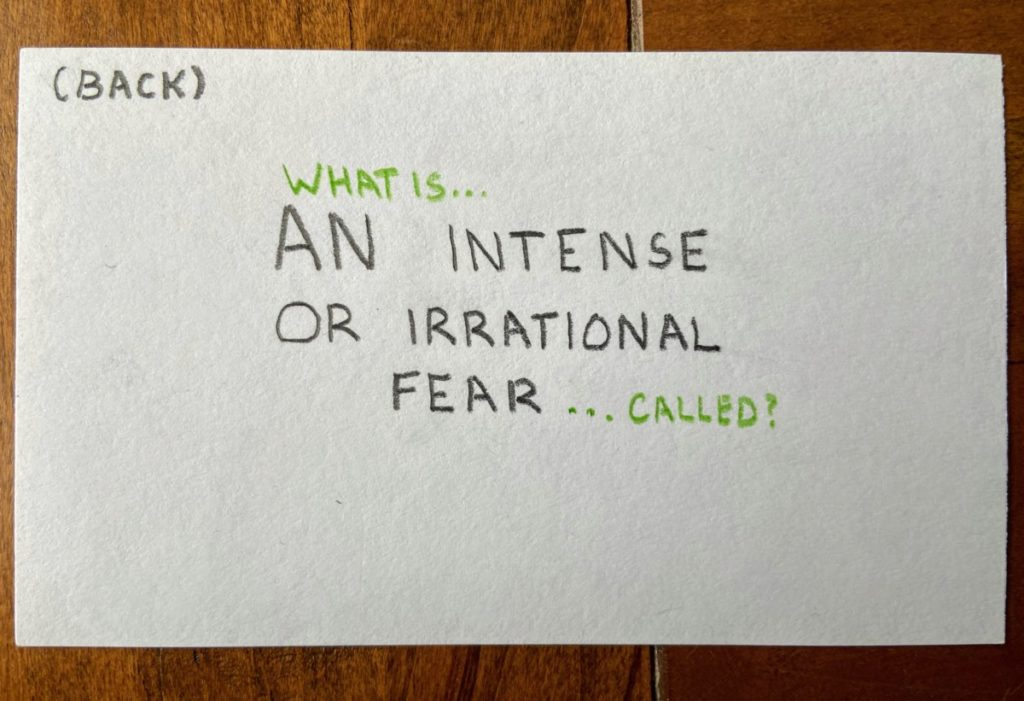 (BACK)
WHAT IS...
AN INTENSE
OR IRRATIONAL
FEAR ... CALLED?